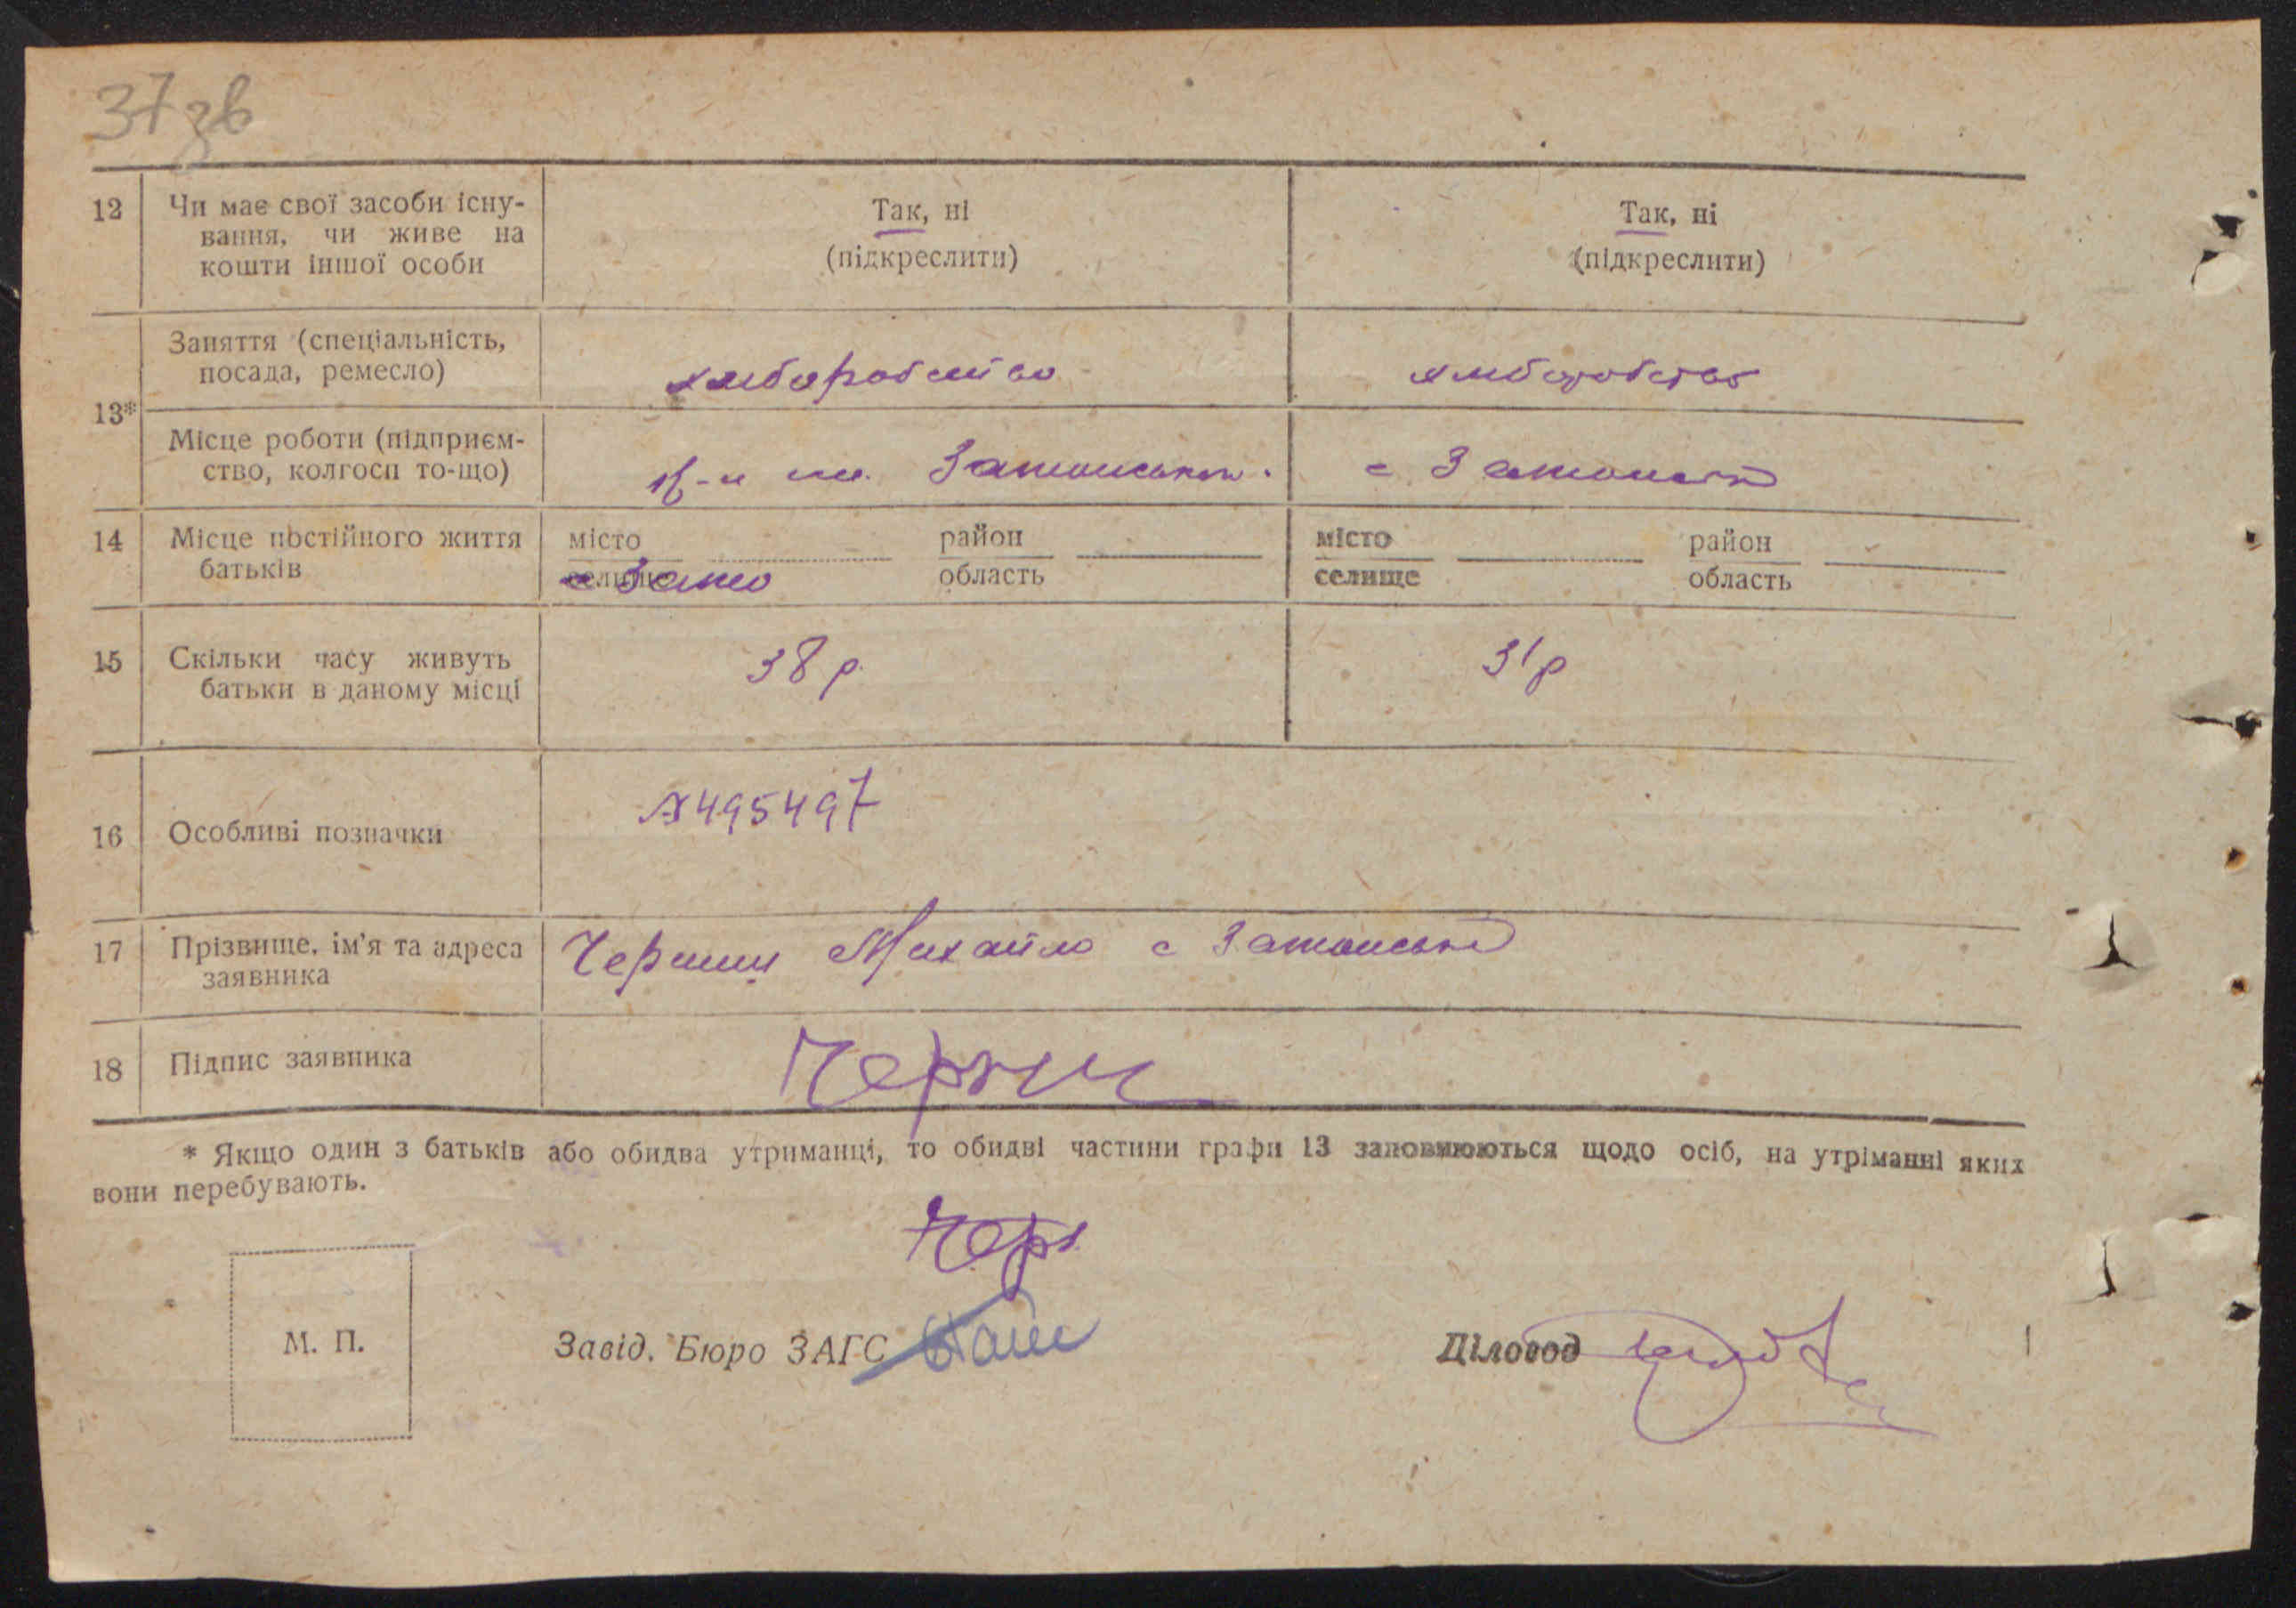 37 зв
12 Чи має свої засоби існу- Так, ні Так, ні
вання, чи живе на (підкреслити) (підкреслити)
кошти іншої особи
Заняття (спеціальність,
посада, ремесло) хліборобство хліборобство
13*
Місце роботи (підприєм-
ство, колгосп то-що) с
14 Місце постійного життя місто район місто район
батьків селище с Зато область селище область
15 Скільки часу живуть 38 р. 31 р
батьки в даному місці
16 Особливі позначки 495497
17 Прізвище, ім'я та адреса Михайло с
заявника
18 Підпис заявника
* Якщо один з батьків або обидва утриманці, то обидві частини графи 13 заповнюються щодо осіб, на утріманні яких
вони перебувають.
Чер
М. П. Завід. Бюро ЗАГС Діловод